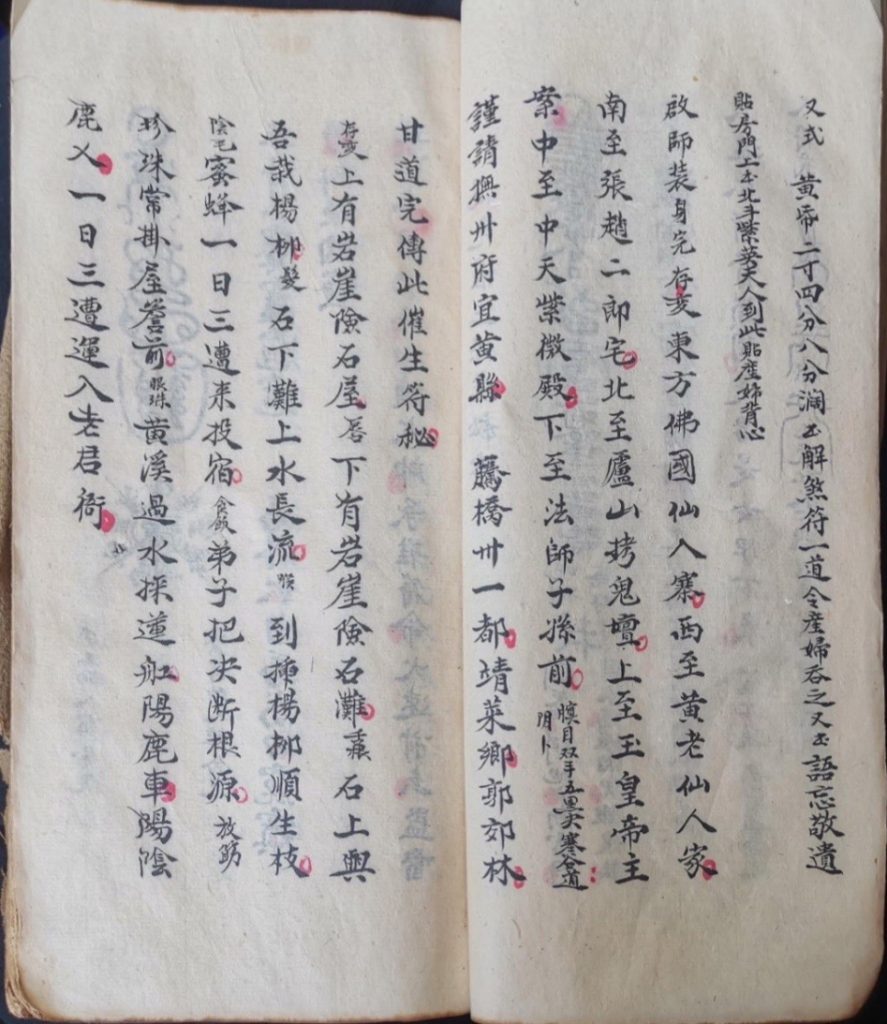 又式 黄帝二寸四分八分濶 解煞符一道令産婦吞之又 語忘敬遺
貼房門上 北斗紫英夫人到此貼産婦背心
啟師装身完存变東方佛國仙人寨西至黄老仙人家
南至張趙二郎宅北至廬山拷鬼壇上至玉皇帝主
案中至中天紫微殿下至法師子孫前 瞑目双手五 寒谷道 阴卜
謹請撫卅府宜黄縣 騰橋卅一都靖菜鄉郭郊林
甘道完傳此催生符秘
存变上有岩崖險石屋唇下有岩崖險石灘 石上與
吾栽楊柳髮石下灘上水長流喉 到揷楊柳順生枝
陰毛蜜蜂一日三遭来投宿食飯弟子把决断根源放
珍珠常掛屋簷前眼珠黄溪過水採蓮舡陽鹿車陽陰
鹿乂一日三遭運入老君衙